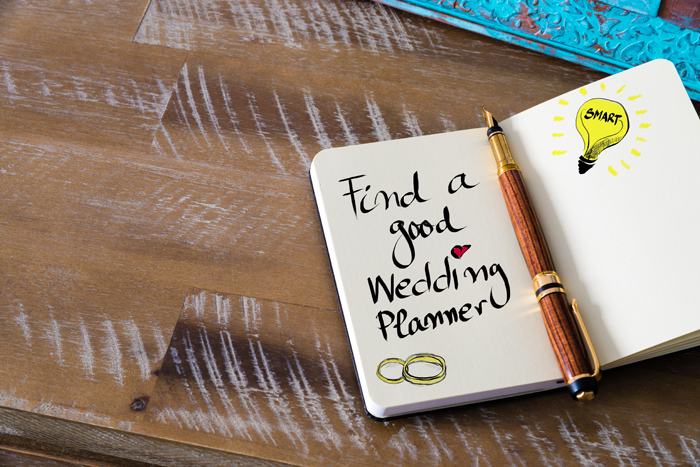 Find a
good
Wedding
Planner
SMART